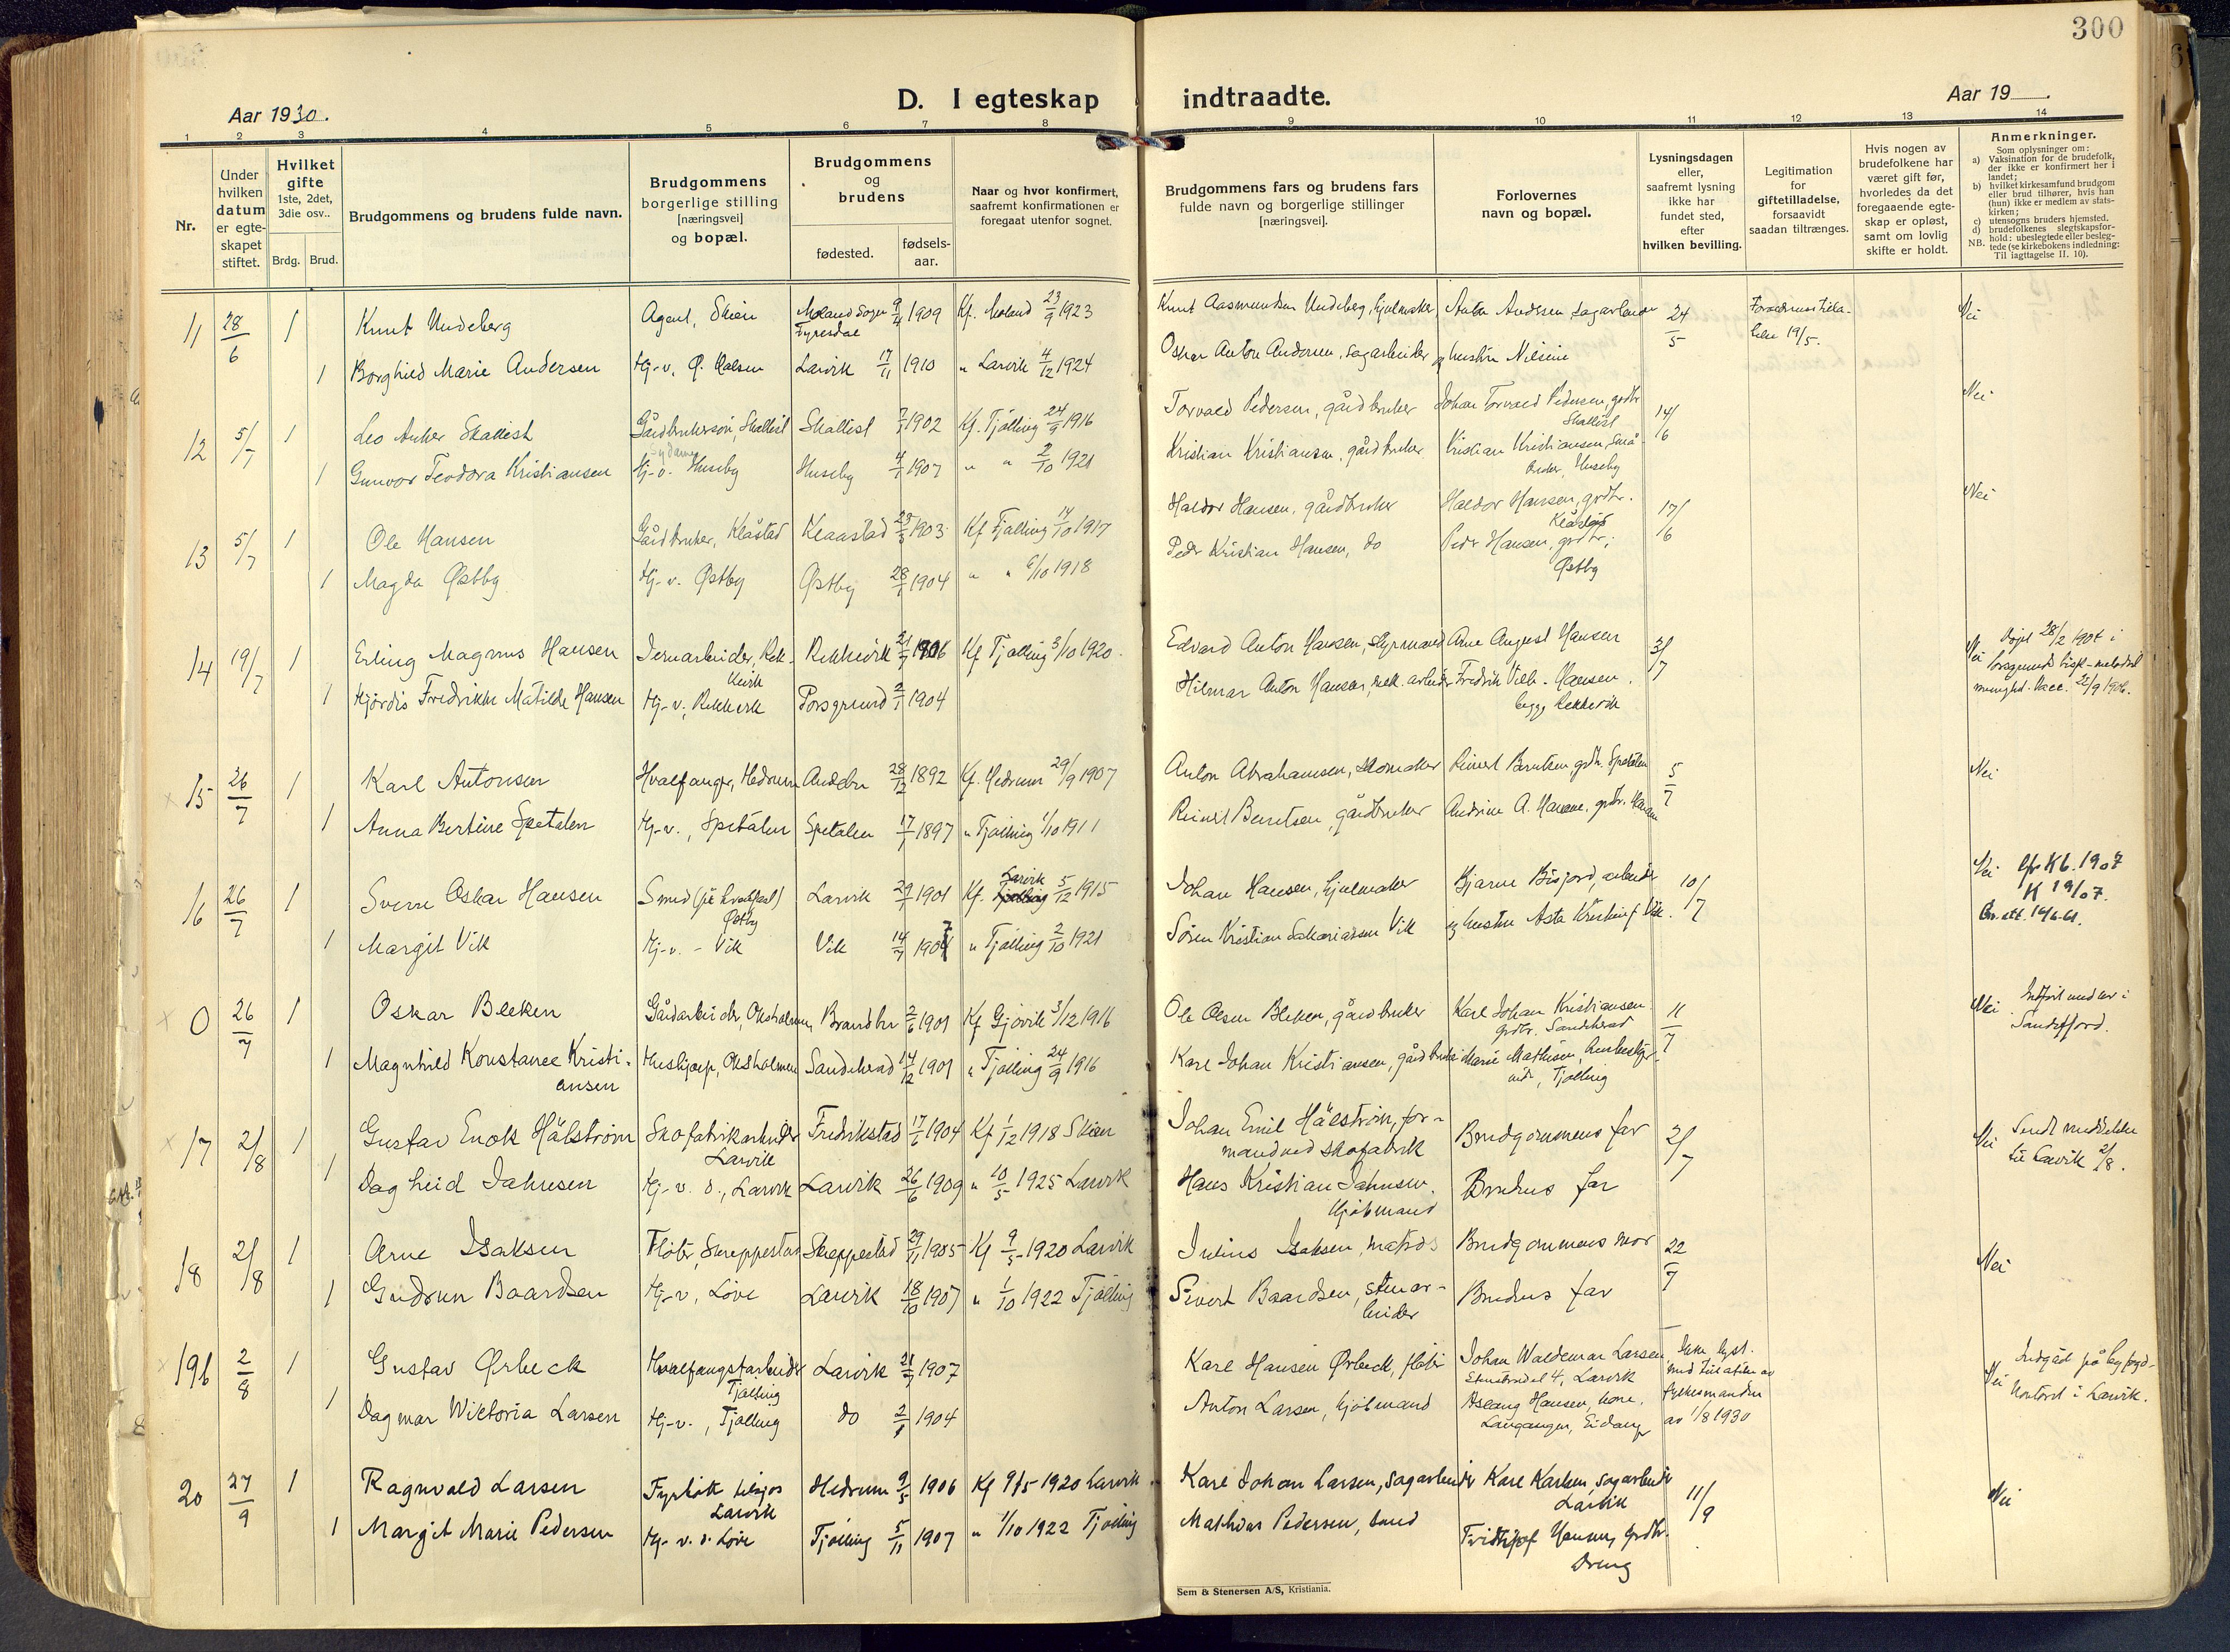 300
Aar 1930.
D. I egteskap indtraadte.
Aar 19
1 2 3 4 5 6 7 8 9 10 11 12 13 14
Nr.
Under
hvilken
datum
er egte-
skapet
stiftet.
Hvilket
gifte
1ste, 2det,
3die osv..
Brdg. Brud.
Brudgommens og brudens fulde navn.
Brudgommens
borgerlige stilling
[næringsvei]
og bopæl.
Brudgommens
og
brudens
fødested.
fødsels-
aar.
Naar og hvor konfirmert,
saafremt konfirmationen er
foregaat utenfor sognet.
Brudgommens fars og brudens fars
fulde navn og borgerlige stillinger
[næringsvei].
Forlovernes
navn og bopæl.
Lysningsdagen
eller,
saafremt lysning
ikke har
fundet sted,
efter
hvilken bevilling.
Legitimation
for
giftetilladelse,
forsaavidt
saadan tiltrænges.
Hvis nogen av
brudefolkene har
været gift før,
hvorledes da det
foregaaende egte-
skap er opløst,
samt om lovlig
skifte er holdt.
Anmerkninger.
Som oplysninger om:
a) Vaksination for de brudefolk,
der ikke er konfirmert her i
landet;
b) hvilket kirkesamfund brudgom
eller brud tilhører, hvis han
(hun) ikke er medlem av stats-
kirken;
c) utensogns bruders hjemsted.
d) brudefolkenes slegtskapsfor-
hold: ubeslegtede eller besleg-
NB. tede (se kirkebokens indledning:
Til iagttagelse II. 10).
11 28/6 1 Knut Undeberg Agent, Skien Moland sogn Fyresdal 9/4 1909 Kf. Moland 23/9 1923 Knut Aasmundsen Undeberg, hjulmaker Anton Andersen sagarbeider 24/5 19/5. Nei
1 Borghild Marie Andersen Hj. v. Larvik 17/11 1910 " Larvik 4/12 1924 Oskar Anton Andersen, sagarbeider og hustru Nilsine
12 5/7 1 Leo Anker Skallist Gårdbrukersøn, Skallist Skallist 1902 Kf. Tjølling 24/9 1916 Torvald Pedersen, gårdbruker Johan Torvald Pedersen, grdbr. Skallist 14/6 Nei
1 Gunvor Teodora Kristiansen Hj. v. Huseby Huseby 1907 " " 2/10 1921 Kristian Kristiansen, gårdbruker Kristian Kristiansen, Små-
bruker, Huseby
13 5/7 1 Ole Hansen Gårdbruker, Klåstad Klaastad 1903 Kf Tjølling 14/10 1917 Haldor Hansen, gårdbruker Haldor Hansen, grdbr. Klåstad 17/6 Nei
1 Magda Østby Hj. v. Østby Østby 1904 " " 6/10 1918 Peder Kristian Hansen, do Peder Hansen, grdbr.; Østby
14 19/7 1 Erling Magnus Hansen Jernarbeider, Rek-
kevik Rekkevik 1906 Kf Tjølling 3/10 1920. Edvard Anton Hansen, styrmand Arne August Hansen 3/7 Nei 28/2 1904 i
1 Hjørdis Fredrikke Matilde Hansen Hj. v., Rekkevik Porsgrund 1904 Hilmar Anton Hansen, mek. arbeider Fredrik Vilh. Hansen.
begge Rekkevik
15 26/7 1 Karl Antonsen Hvalfanger, Hedrum Andebu 28/12 1892 Kf. Hedrum 29/9 1907 Anton Abrahamsen, skomaker Reinert Berntsen grdb. Spetalen 5/7 Nei
1 Anna Bertine Spetalen Hj. v., Spetalen Spetalen 1897 " Tjølling 1/10 1911 Reinert Berntsen, gårdbruker Andrine A.
16 26/7 1 Sverre Oskar Hansen Smed (på hvalfangst) Østby Larvik 1901 Kf. Larvik 5/12 1915 Johan Hansen, hjulmaker Bjarne Bisjord, arbeider 10/7 Nei Kb. 1907
K 19/07.
1 Margit Vik Hj. v. - Vik Vik 1907 " Tjølling 2/10 1921 Søren Kristian Sakariassen Vik og hustru Asta Kristine f. Vik.
0 26/7 1 Oskar Bleken Gårdarbeider, Oksholmen Brandbu 2/6 1901 Kf Gjøvik 3/12 1916 Ole Olsen Bleken, gårdbruker Karl Johan Kristiansen
grdbr. Sandeherad 11/7 Nei Indført under i
Sandefjord.
1 Magnhild Konstance Kristi-
ansen Hushjælp, Oksholmen Sandeherad 14/12 1901 " Tjølling 24/9 1916 Karl Johan Kristiansen, gårdbruker Marie Mathisen, Tjølling
17 2/8 1 Gustav Enok Hälström Skofabrikarbeider Larvik Fredrikstad 1904 Kf 1/12 1918 Skien Johan Emil Hälström, for-
mand ved skofabrik Brudgommens far 2/7 Nei Sendt meddelelse
til Larvik 2/8.
1 Dagheid Jahnsen Hj. v. d., Larvik Larvik 26/6 1909 " 10/5 1925 Larvik Hans Kristian Jahnsen.
Kjøbmand Brudens far
18 2/8 1 Arne Isaksen Fløter, Skreppestad Skreppestad 29/11 1905 Kf 9/5 1920 Larvik Julius Isaksen, matros Brudgommens mor 22/7 Nei
1 Gudrun Baardsen Hj. v., Løve Larvik 18/10 1907 " 1/10 1922 Tjølling Sivert Baardsen, stenar-
beider Brudens far
19b 2/8 1 Gustav Ørbeck Hvalfangstarbeider Tjølling Larvik 1907 Karl Hansen Ørbeck, fløter Johan Waldemar Larsen
4, Larvik
fylkesmanden
av 1/8 1930 Nei Indgåd på byfogd-
kontoret i Larvik.
1 Dagmar Wiktoria Larsen Hj. v., Tjølling do 1904 Anton Larsen, kjøbmand Aslaug Hansen, kone,
Langangen, Eidanger
20 27/9 1 Ragnvald Larsen Fyrbøter tilsjøs
Larvik Hedrum 9/5 1906 Kf 9/5 1920 Larvik Karl Johan Larsen, sagarbeider Karl Karlsen, sagarbeider
Larvik 11/9 Nei
1 Margit Marie Pedersen Hj. v. d. Løve Tjølling 5/11 1907 " 1/10 1922 Tjølling Mathias Pedersen, smed Fridtjof grdbr.
Sem & Stenersen A/S, Kristiania.